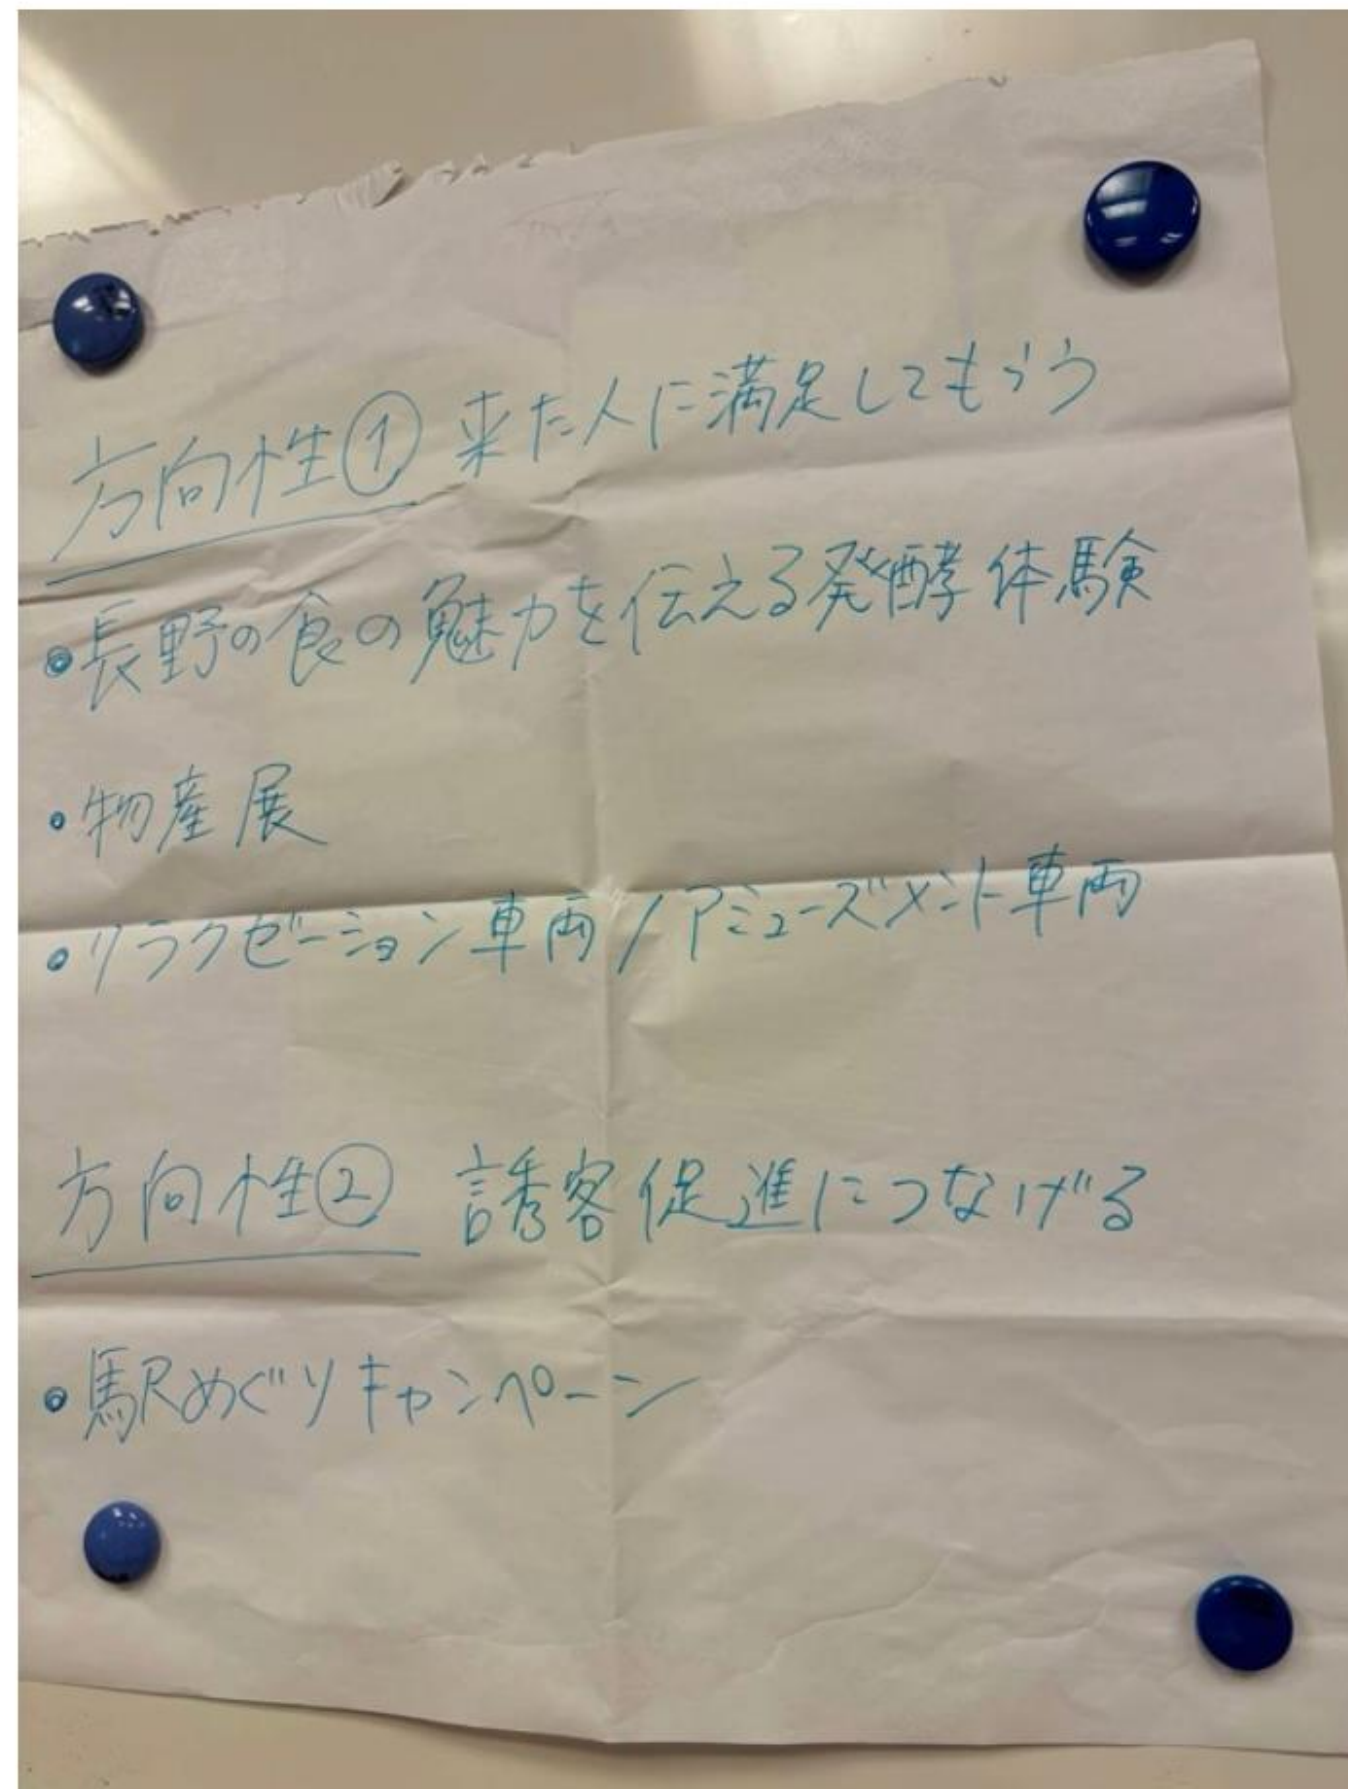 方向性① 来た人に満足してもらう
・長野の食の魅力を伝える発酵体験
・物産展
・リラクゼーション車両/アミューズメント車両
方向性② 誘客促進につなげる
・駅めぐりキャンペーン